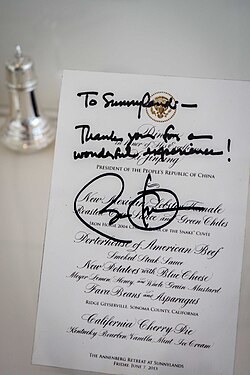 To Sunnylands —
Thank you for a
wonderful experience!
Jinping
PRESIDENT OF THE PEOPLE'S REPUBLIC OF CHINA
New Mexico Tamale
and Green Chiles
Porterhouse of American Beef
Smoked Steak Sauce
New Potatoes with Blue Cheese
Meyer Lemon Honey and Whole Grain Mustard
Fava Beans and Asparagus
RIDGE GEYSERVILLE, SONOMA COUNTY, CALIFORNIA
California Cherry Pie
Kentucky Bourbon Vanilla Mint Ice Cream
THE ANNENBERG RETREAT AT SUNNYLANDS
FRIDAY JUNE 7, 2013